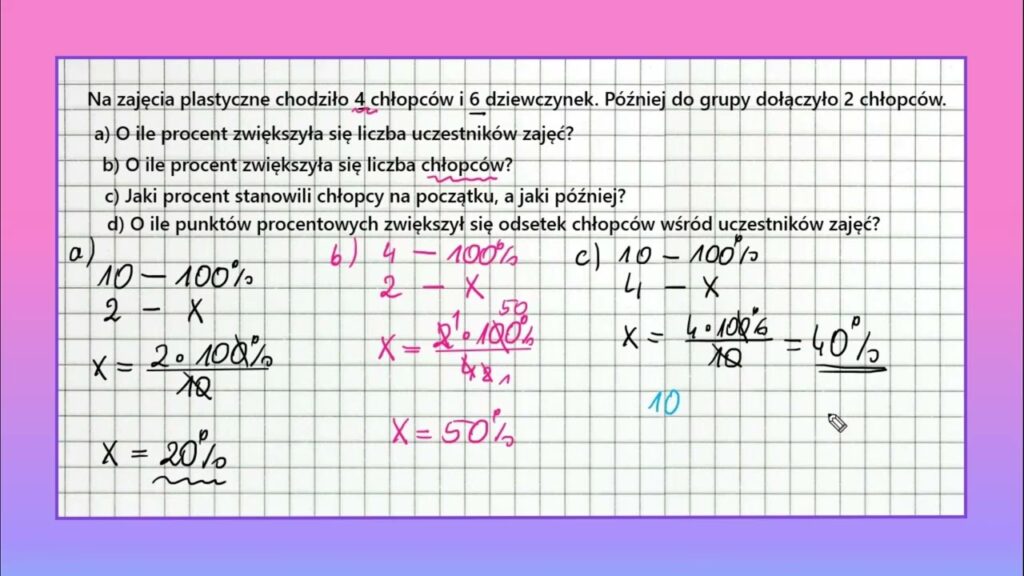 Na zajęcia plastyczne chodziło 4 chłopców i 6 dziewczynek. Później do grupy dołączyło 2 chłopców.
a) O ile procent zwiększyła się liczba uczestników zajęć?
b) O ile procent zwiększyła się liczba chłopców?
c) Jaki procent stanowili chłopcy na początku, a jaki później?
d) O ile punktów procentowych zwiększył się odsetek chłopców wśród uczestników zajęć?
a)
10 — 100%
2 — X
X = 2 • 100% / 10
X = 20%
b) 4 — 100%
2 — X
50
X = 2 1 • 100% / 4 2 1
X = 50%
c) 10 — 100%
4 — X
X = 4 • 100% / 10 = 40%
10